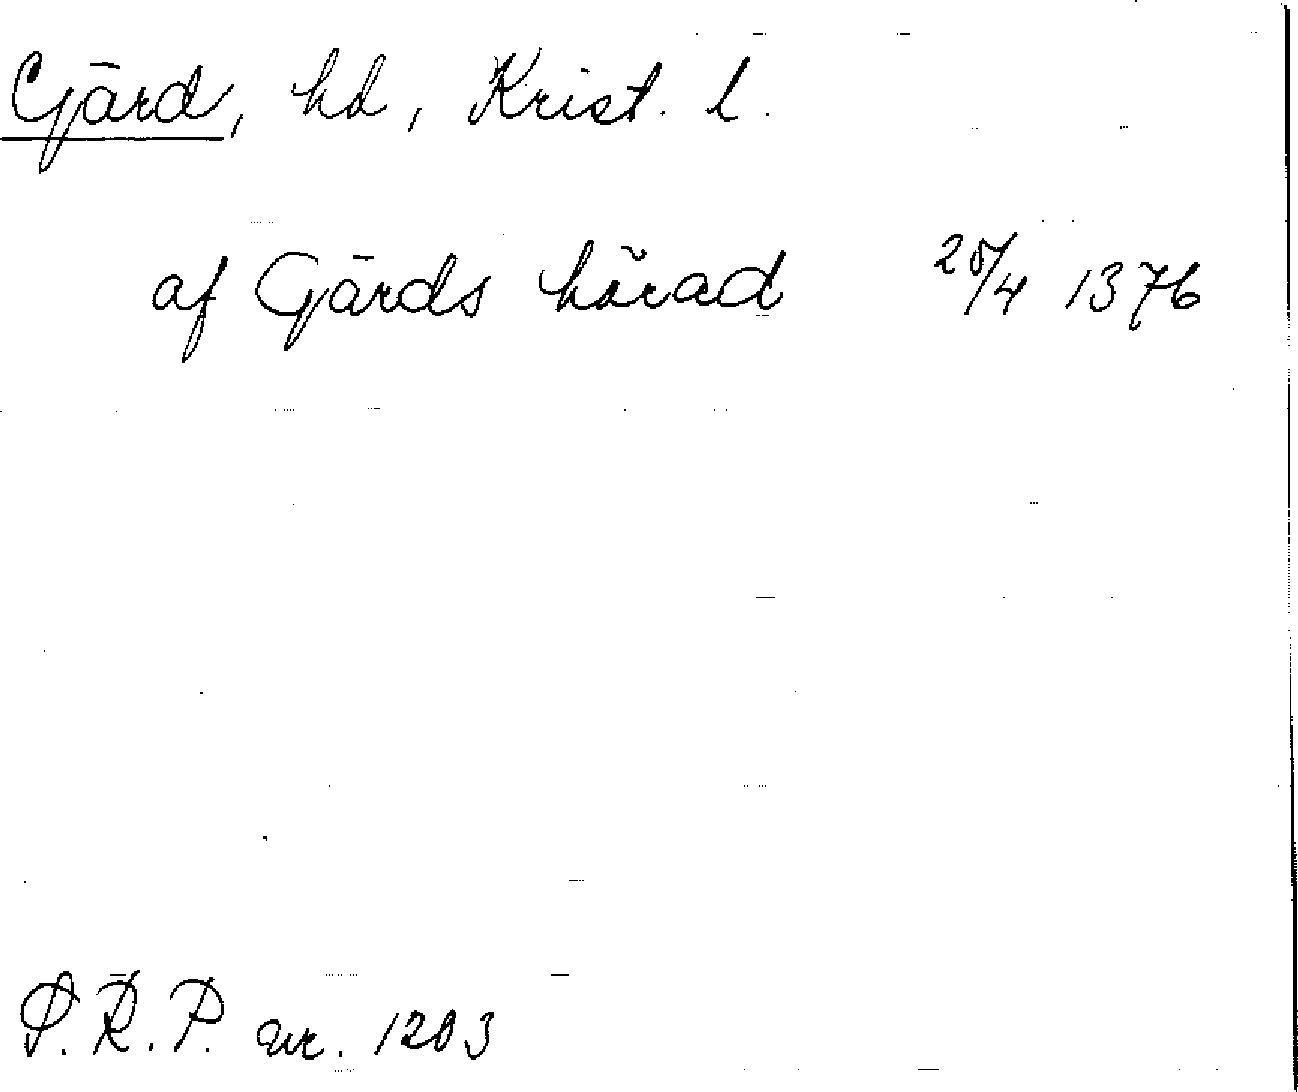 Gärd, hd, Krist. l.
af Gärds härad 25/4 1376
S.R.P. nr. 1203